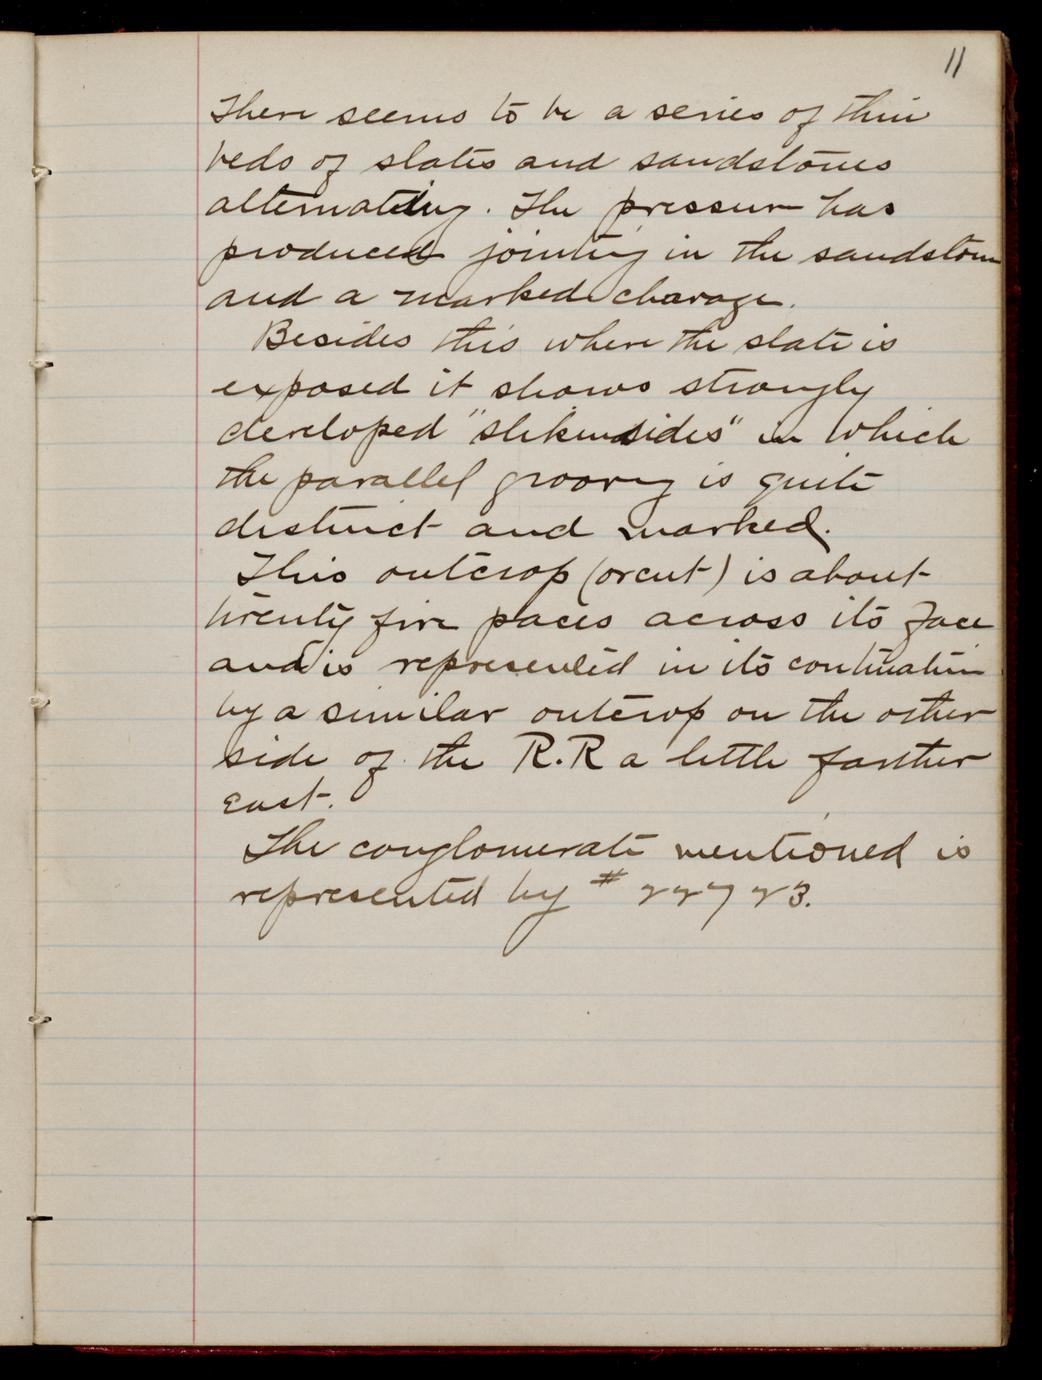 11
There seems to be a series of thin
beds of slates and sandstones
alternating. The pressure has
produced jointing in the sandstone
and a marked clavage.
Besides this where the slate is
exposed it shows strongly
developed "slikensides" in which
the parallel grooving is quite
distinct and marked.
This outcrop (or cut) is about
twenty five paces across its face
and is represented in its continuation
by a similar outcrop on the other
side of the R.R a little farther
east.
The conglomerate mentioned is
represented by # 22 & 23.